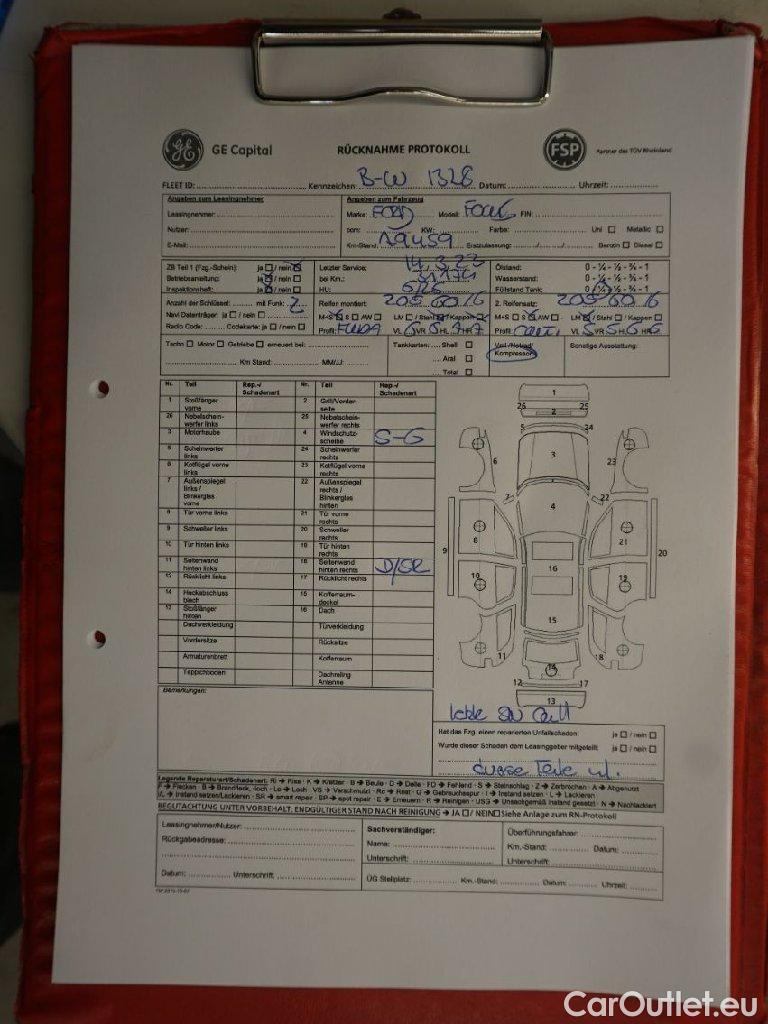 GE Capital RÜCKNAHME PROTOKOLL FSP Partner des TÜV Rheinland
FLEET ID: Kennzeichen: B-W 1328 Datum: Uhrzeit:
Angaben zum Leasingnehmer Angaben zum Fahrzeug
Leasingnehmer: Marke: FORD Modell: FIN:
Nutzer: ccm: KW: Farbe: Uni Metallic
E-Mail: Km-Stand: 19459 Erstzulassung: Benzin Diesel
ZB Teil 1 (Fzg.-Schein): ja / nein Letzter Service: 14.3.22 Ölstand: 0 - ¼ - ½ - ¾ - 1
Betriebsanleitung: ja / nein bei Km.: Wasserstand: 0 - ¼ - ½ - ¾ - 1
Inspektionsheft: ja / nein HU: Füllstand Tank: 0 - ¼ - ½ - ¾ - 1
Anzahl der Schlüssel: mit Funk: 2 Reifen montiert: 205 60 16 2. Reifensatz: 205 60 16
Navi Datenträger: ja / nein M+S S AW LM / Stahl / Kappen M+S S AW LM / Stahl / Kappen
Radio Code: Codekarte: ja / nein Profil: FULDA VL VR HL HR Profil: VL VR HL HR
Tacho Motor Getriebe erneuert bei: Tankkarten: Shell Kompressor Sonstige Ausstattung:
Km Stand: MM/J: Aral
Total
Nr. Teil Rep.-/ Schadenart Nr. Teil Rep.-/ Schadenart
1 Stoßfänger vorne 2 Grill/Vorderseite
26 Nebelscheinwerfer links 25 Nebelscheinwerfer rechts
3 Motorhaube 4 Windschutzscheibe S-G
5 Scheinwerfer links 24 Scheinwerfer rechts
6 Kotflügel vorne links 23 Kotflügel vorne rechts
7 Außenspiegel links / Blinkerglas vorne 22 Außenspiegel rechts / Blinkerglas hinten
8 Tür vorne links 21 Tür vorne rechts
9 Schweller links 20 Schweller rechts
10 Tür hinten links 19 Tür hinten rechts
11 Seitenwand hinten links 18 Seitenwand hinten rechts D/SR
Rücklicht links 17 Rücklicht rechts
14 Heckabschlussblech 15 Kofferraumdeckel
Stoßfänger hinten 16 Dach
Dachverkleidung Türverkleidung
Vordersitze Rücksitze
Armaturenbrett Kofferraum
Teppichboden Dachreling Antenne
1
26 25
2
5 24
3
6 23
7 22
4
8 21
9 20
16
10 19
15
11 18
14
12 17
13
Bemerkungen:
Hat das Fzg. einen reparierten Unfallschaden ja / nein
Wurde dieser Schaden dem Leasinggeber mitgeteilt ja / nein
Legende Reparaturart/Schadenart: RI → Riss · K → Kratzer · B → Beule · D → Delle · FD → Fehlend · S → Steinschlag · Z → Zerbrochen · A → Abgenutzt
F → Flecken · B → Brandfleck, -loch · Lo → Loch · VS → Verschmutzt · Re → Rest · G → Gebrauchsspur · I → Instand setzen · L → Lackieren
I/L → Instand setzen/Lackieren · SR → smart repair · SP → spot repair · E → Erneuern · R → Reinigen · USG → Unsachgemäß instand gesetzt · N → Nachlackiert
BEGUTACHTUNG UNTER VORBEHALT, ENDGÜLTIGER STAND NACH REINIGUNG → JA / NEIN Siehe Anlage zum RN-Protokoll
Leasingnehmer/Nutzer: Sachverständiger: Überführungsfahrer:
Rückgabeadresse: Name: Km.-Stand: Datum:
Unterschrift: Unterschrift:
Datum: Unterschrift: ÜG Stellplatz: Km.-Stand: Datum: Uhrzeit:
CarOutlet.eu